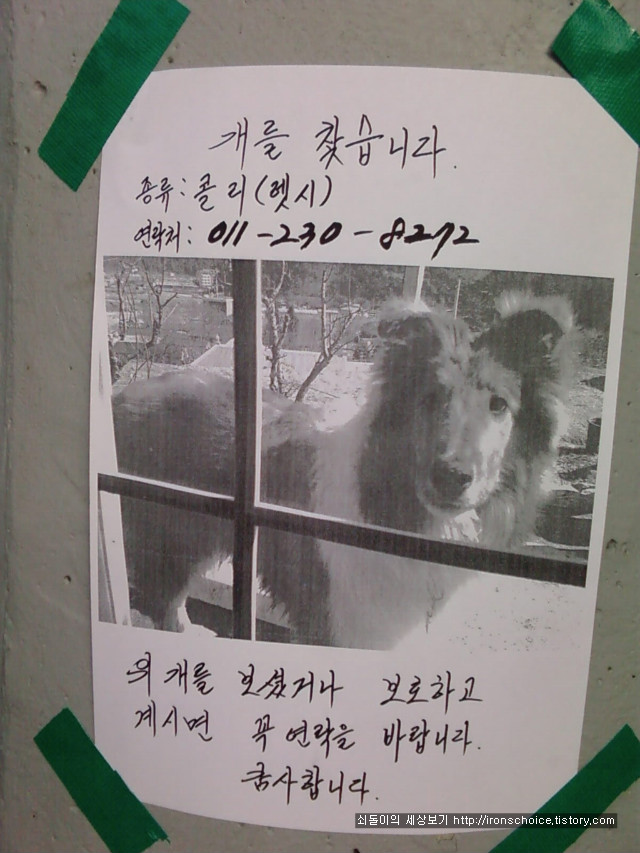 개를 찾습니다.
종류: 콜리(렛시)
연락처: 011-230-8272
위 개를 보셨거나 보호하고
계시면 꼭 연락을 바랍니다.
감사합니다.
쇠돌이의 세상보기 http://ironschoice.tistory.com